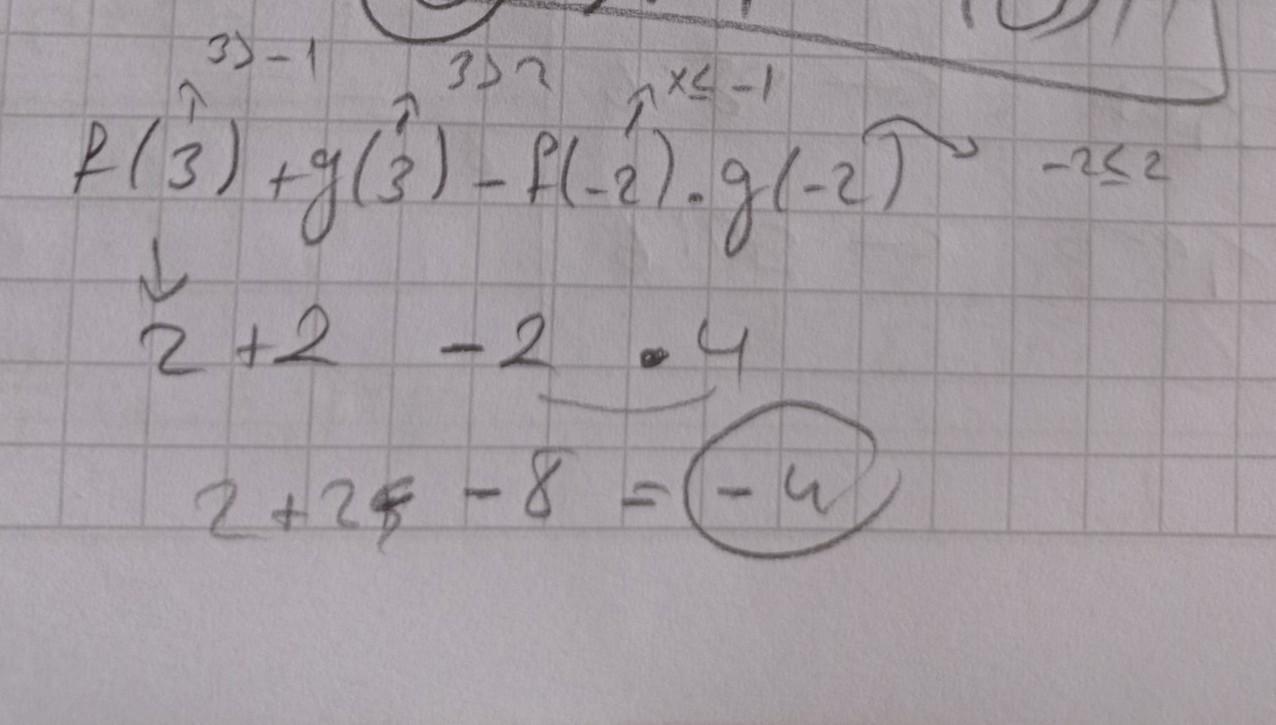 3>-1 3>2 x≤-1
f(3)+g(3)-f(-2).g(-2) -2≤2
2+2 -2 . 4
2+2 -8 = -4